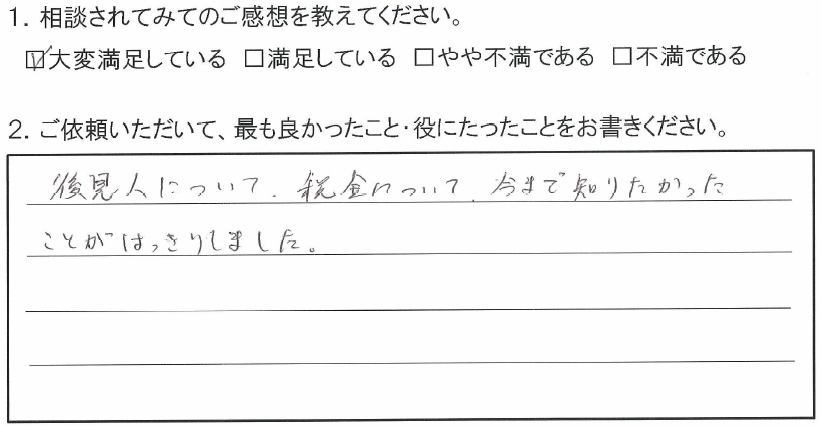 1. 相談されてみてのご感想を教えてください。
☑大変満足している □満足している □やや不満である □不満である
2. ご依頼いただいて、最も良かったこと・役にたったことをお書きください。
後見人について、税金について、今まで知りたかった
ことがはっきりしました。